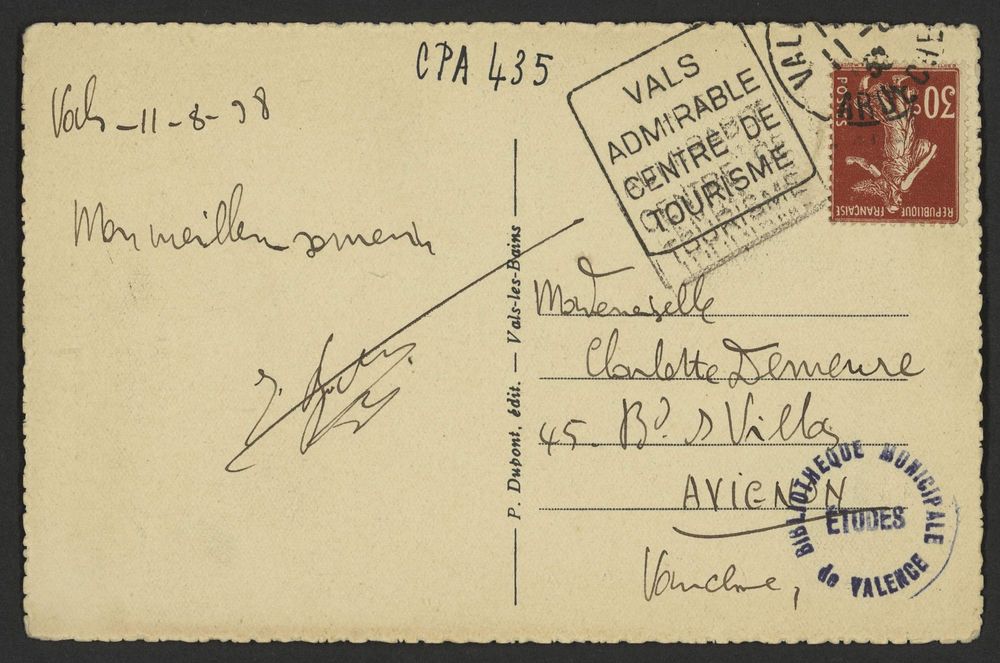 CPA 435
Vals - 11 - 8 - 38
Mon meilleur souvenir
VALS
ADMIRABLE
CENTRE DE
TOURISME
VAL
30c
POSTES
REPUBLIQUE FRANÇAISE
P. Dupont, édit. — Vals-les-Bains
Mademoiselle
Charlotte Demeure
45 - Bd. s Villas
AVIGNON
Vaucluse,
BIBLIOTHEQUE MUNICIPALE
ÉTUDES
de VALENCE